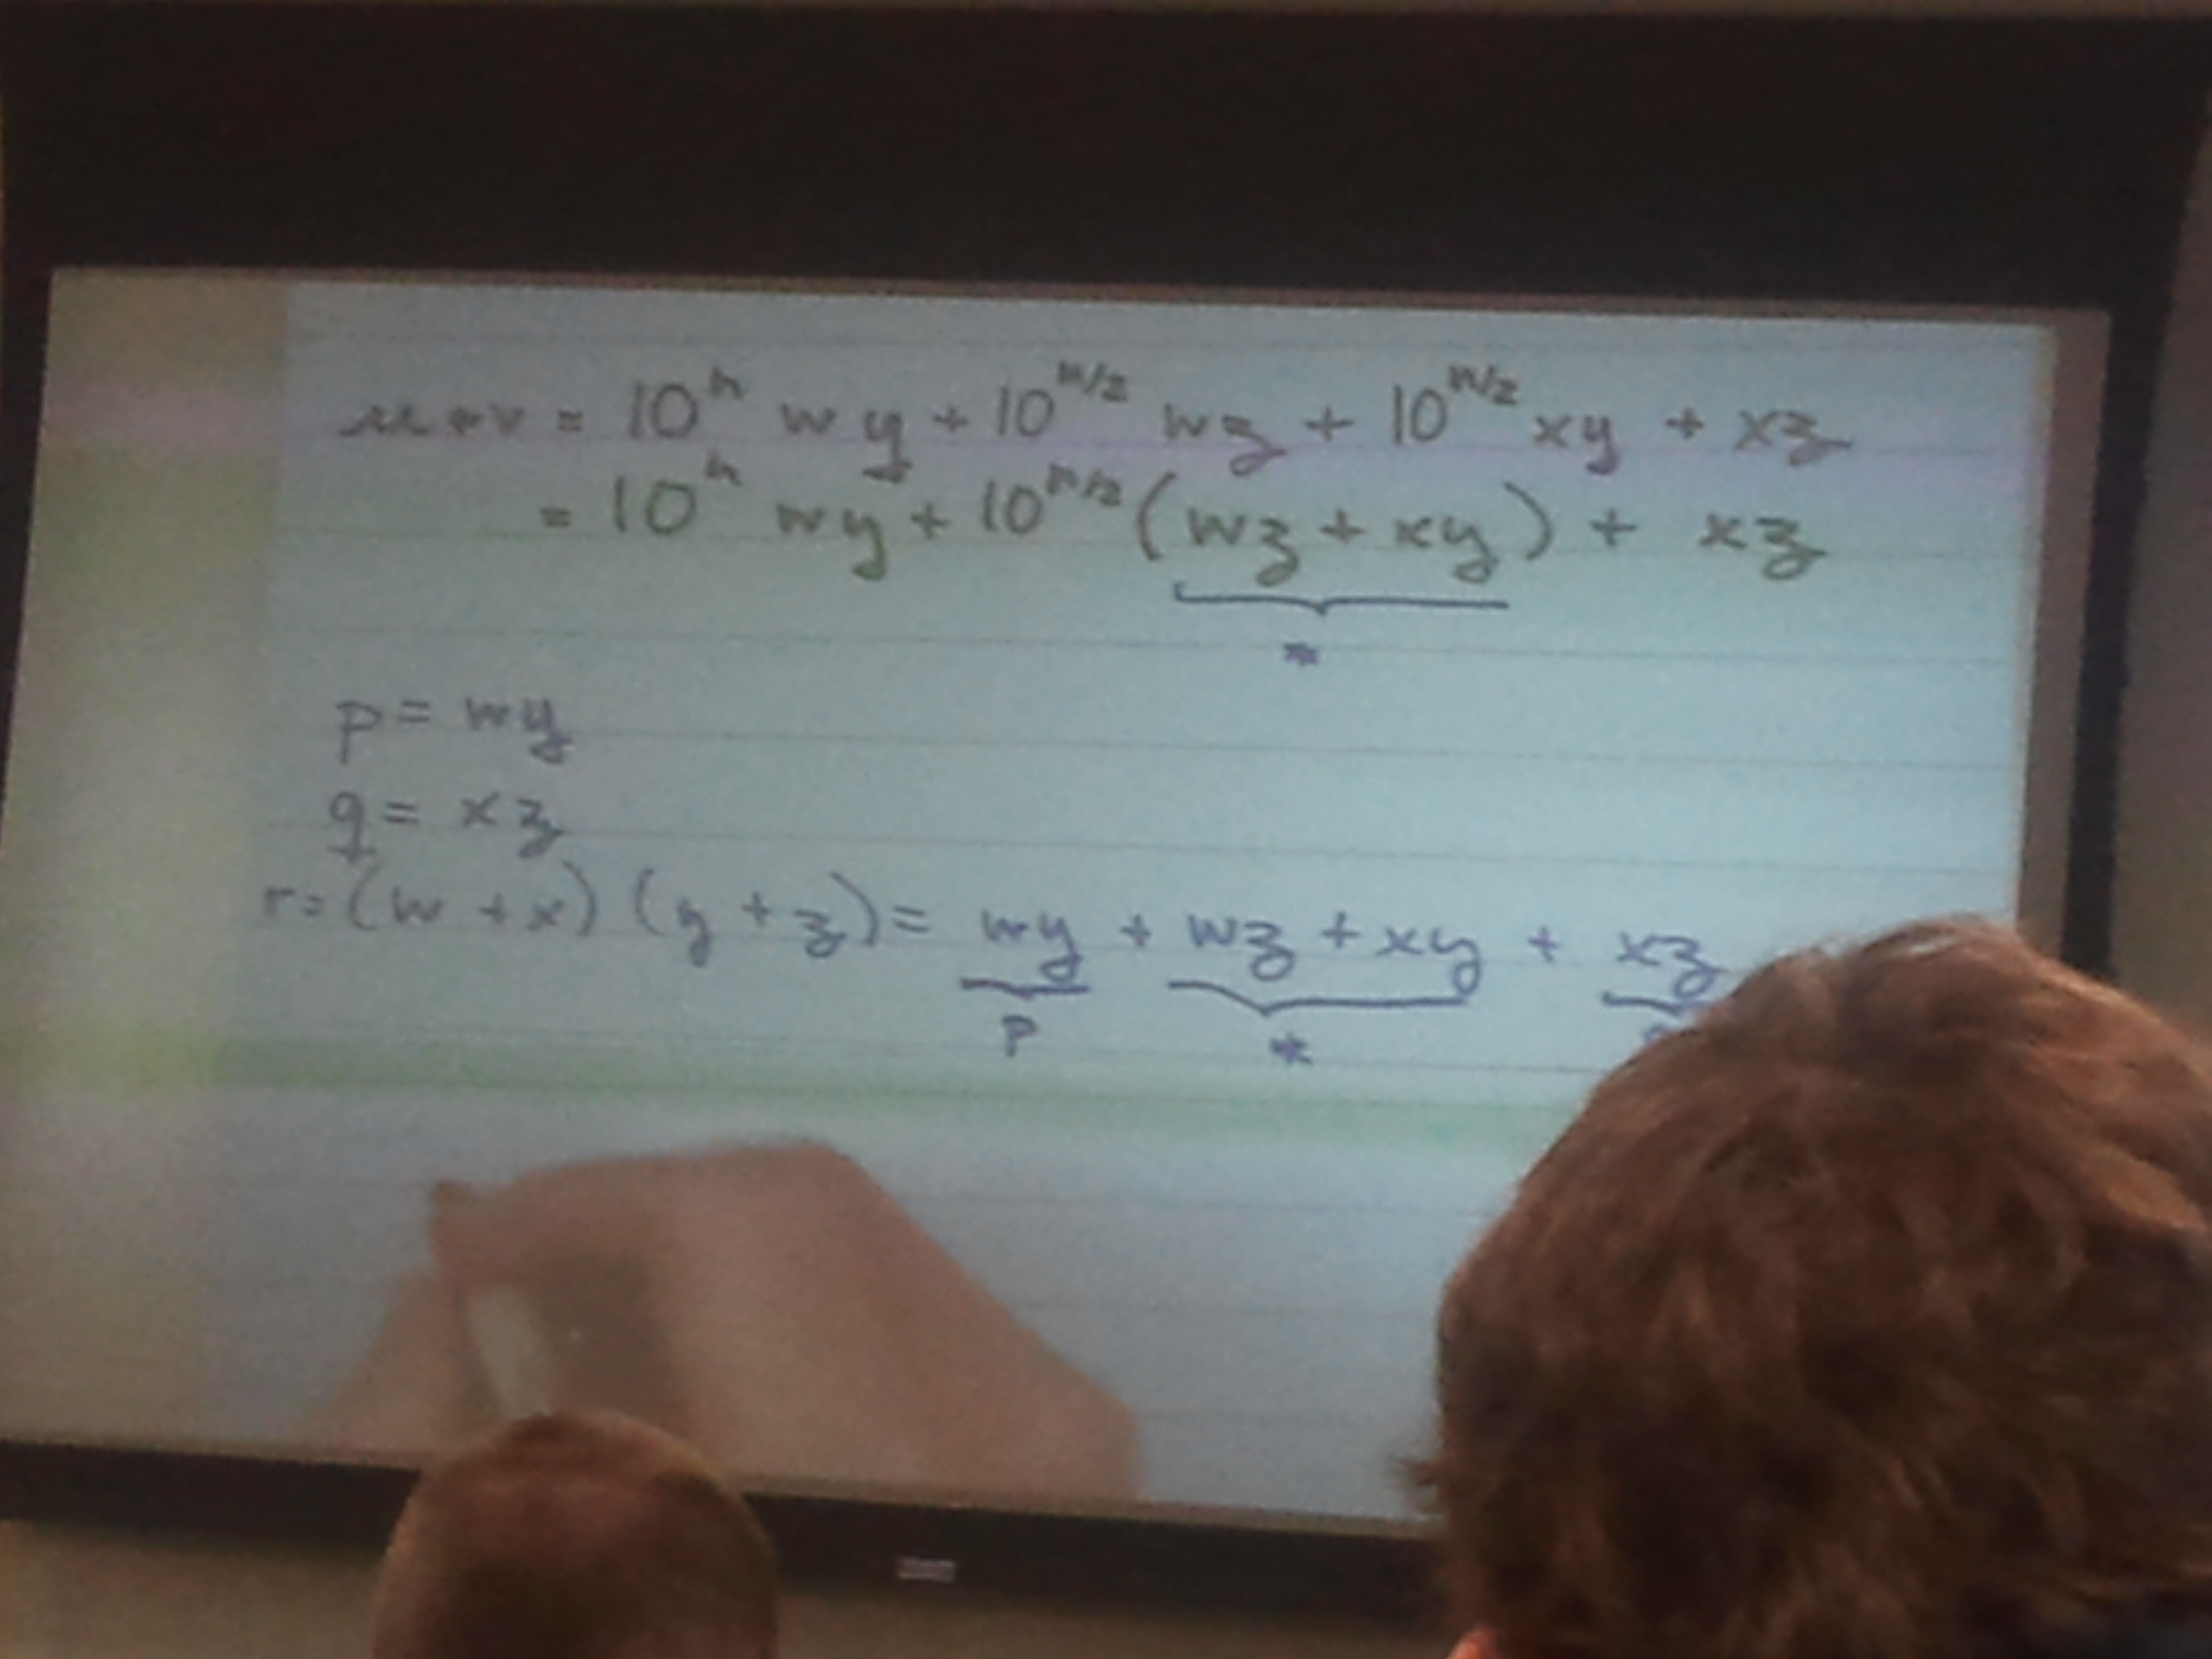 u * v = 10^n wy + 10^{n/2} wz + 10^{n/2} xy + xz
= 10^n wy + 10^{n/2} (wz + xy) + xz
*
p = wy
q = xz
r = (w + x) (y + z) = wy + wz + xy + xz
p *